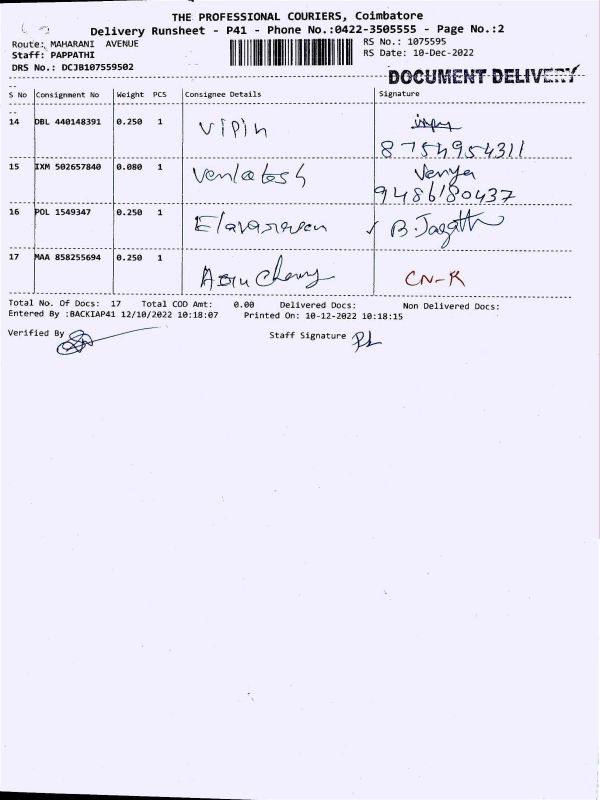 THE PROFESSIONAL COURIERS, Coimbatore
Delivery Runsheet - P41 - Phone No.:0422-3505555 - Page No.:2
Route: MAHARANI AVENUE
RS No.: 1075595
Staff: PAPPATHI
RS Date: 10-Dec-2022
DRS No.: DCJB107559502
DOCUMENT DELIVERY
S No Consignment No Weight PCS Consignee Details Signature
14 DBL 440148391 0.250 1 Vipin
8754954311
15 IXM 502657840 0.080 1 Venkatesh Venya
9486180437
16 POL 1549347 0.250 1 B. Jagath
17 MAA 858255694 0.250 1 CN-R
Total No. Of Docs: 17 Total COD Amt: 0.00 Delivered Docs: Non Delivered Docs:
Entered By :BACKIAP41 12/10/2022 10:18:07 Printed On: 10-12-2022 10:18:15
Verified By Staff Signature